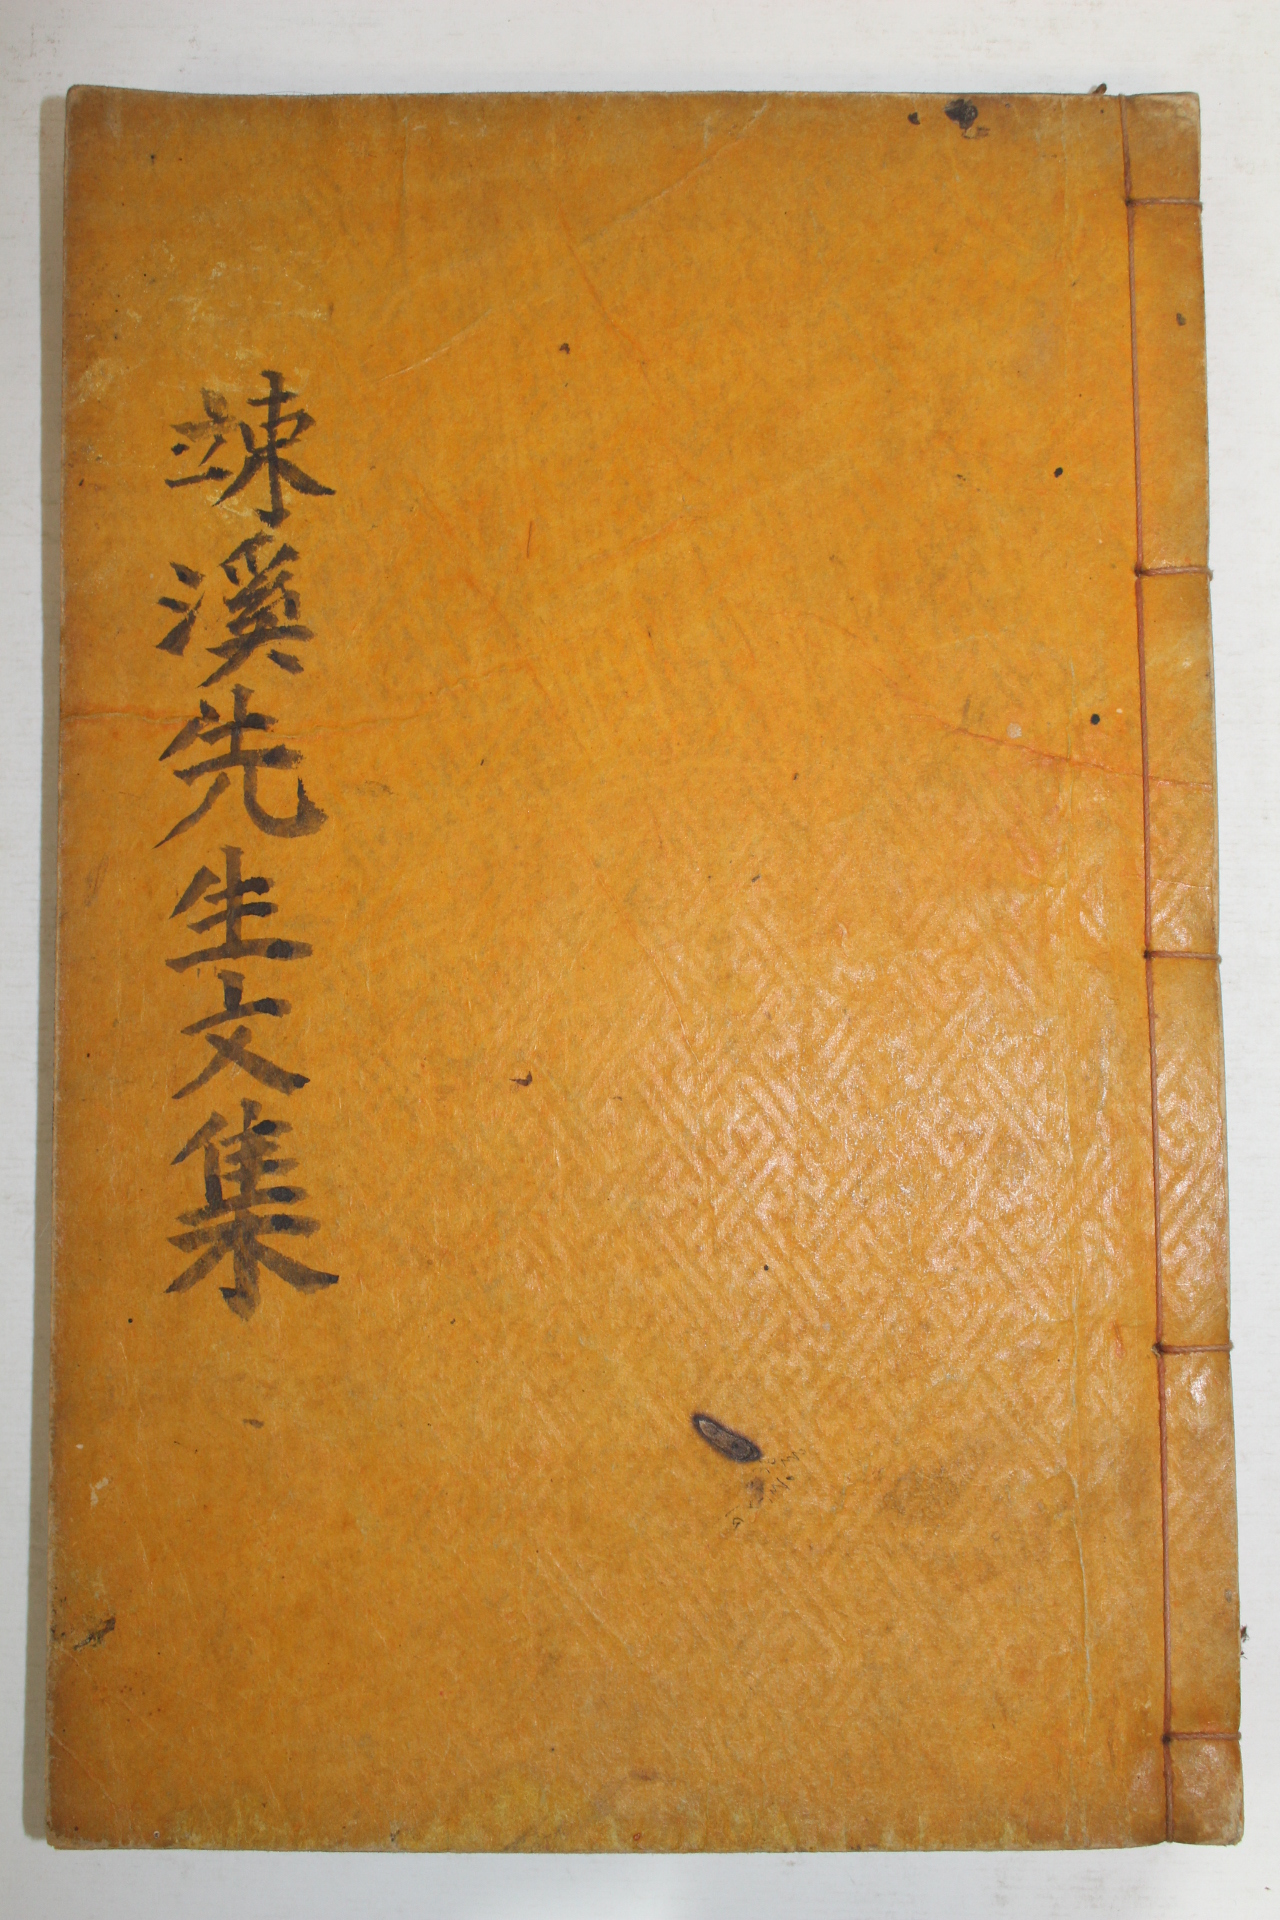 竦溪先生文集